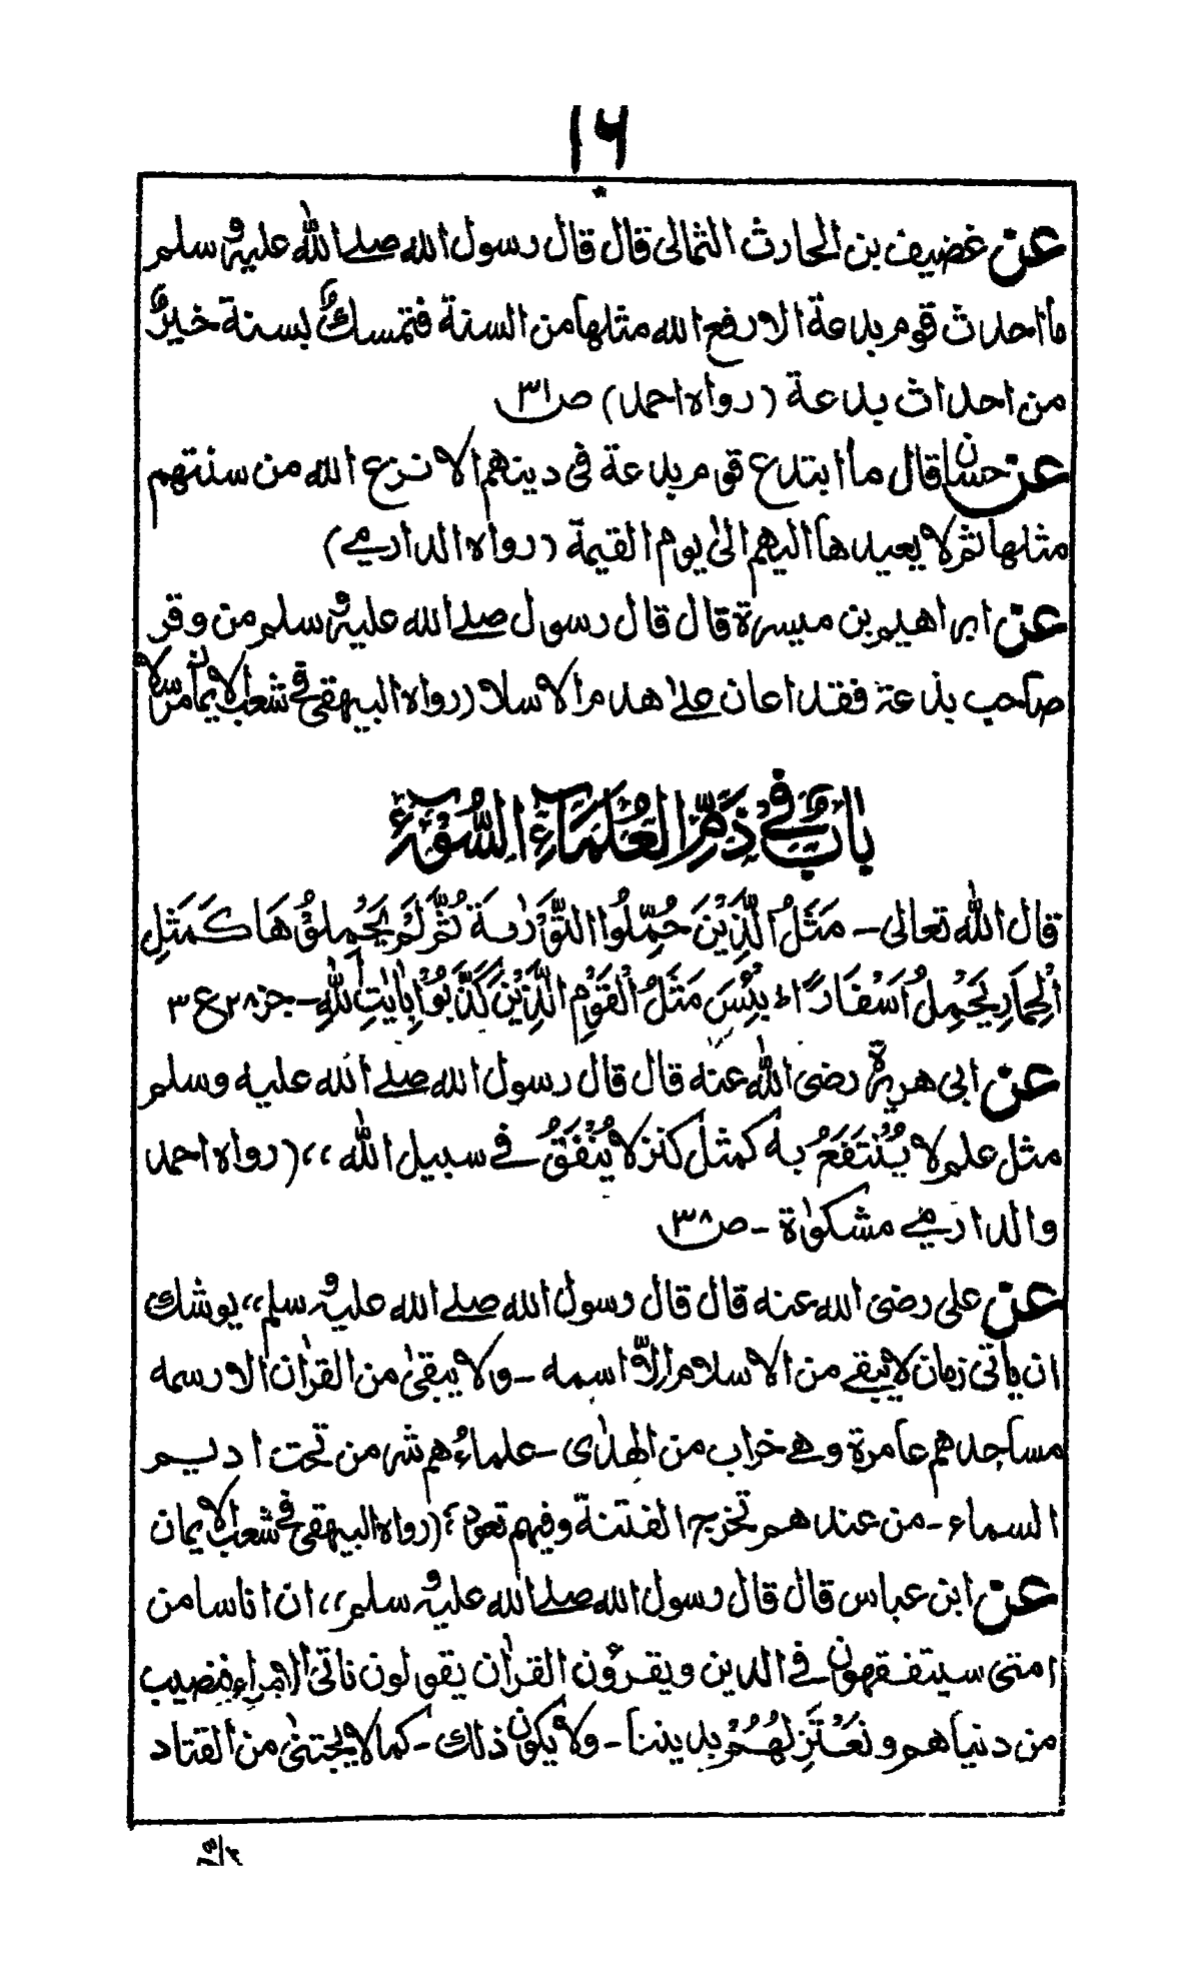 ۱۶
عن غضيف بن الحارث الثمالى قال قال رسول الله صلے الله عليه وسلم
ما احدث قوم بدعة الا رفع الله مثلها من السنة فتمسك بسنة خيرٌ
من احداث بدعة (رواه احمد) ص۳۱
عن حسان قال ما ابتدع قوم بدعة فى دينهم الا نزع الله من سنتهم
مثلها ثم لا يعيدها اليهم الىٰ يوم القيمة (رواه الدارمے)
عن ابراهيم بن ميسرة قال قال رسول صلے الله عليه وسلم من وقر
صاحب بدعة فقد اعان علےٰ هدم الاسلا (رواه البيهقى فى شعب الايمان مرسلا
بابٌ فِے ذَمِّ الْعُلَمَآءِ السُّوْٓءِ
قال الله تعالى - مَثَلُ الَّذِيْنَ حُمِّلُوا التَّوْرٰىةَ ثُمَّ لَمْ يَحْمِلُوْهَا كَمَثَلِ
الْحِمَارِ يَحْمِلُ اَسْفَارًا ط بِئْسَ مَثَلُ الْقَوْمِ الَّذِيْنَ كَذَّبُوْا بِاٰيٰتِ اللّٰهِ - جز ۲۸ ع ۳
عن ابى هريرة رضى الله عنه قال قال رسول الله صلے الله عليه وسلم
مثل علم لا يُنْتَفَعُ به كمثل كنز لا يُنْفَقُ فے سبيل الله ،، (رواه احمد
والدارمے مشكوٰة - ص۳۸
عن على رضى الله عنه قال قال رسول الله صلے الله عليه وسلم ،، يوشك
ان ياتى زمان لا يبقے من الاسلام اِلّا اسمه - ولا يبقىٰ من القراٰن الا رسمه
مساجدهم عامرة وهے خراب من الهدٰى - علماءُهم شر من تحت اديم
السماء - من عندهم تخرج الفتنة وفيهم تعود ؛ (رواه البيهقى فى شعب الايمان
عن ابن عباس قال قال رسول الله صلے الله عليه وسلم ،، ان اناسا من
امتى سيتفقهون فے الدين ويقرؤن القراٰن يقولون ناتى الامراء فنصيب
من دنياهم ونَعْتَزِلُهُمْ بديننا - ولا يكون ذلك - كما لا يجتنىٰ من القتاد